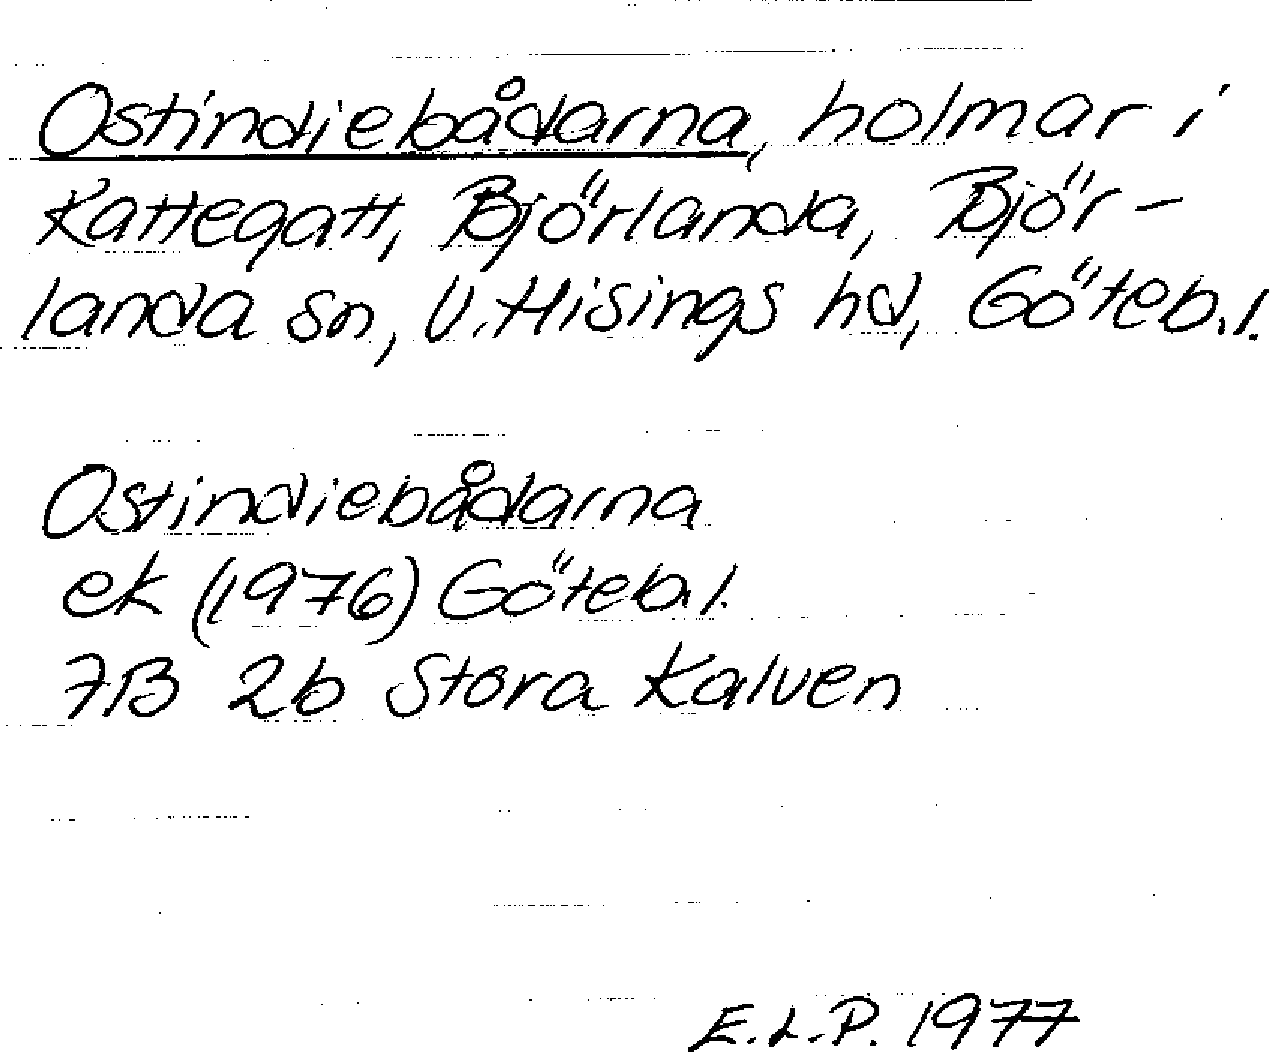 Ostindiebådarna, holmar i
Kattegatt, Björlanda, Björ-
landa sn, V. Hisings hd, Göteb. l.
Ostindiebådarna
ek (1976) Göteb. l.
7B 2b Stora Kalven
E.L.P. 1977